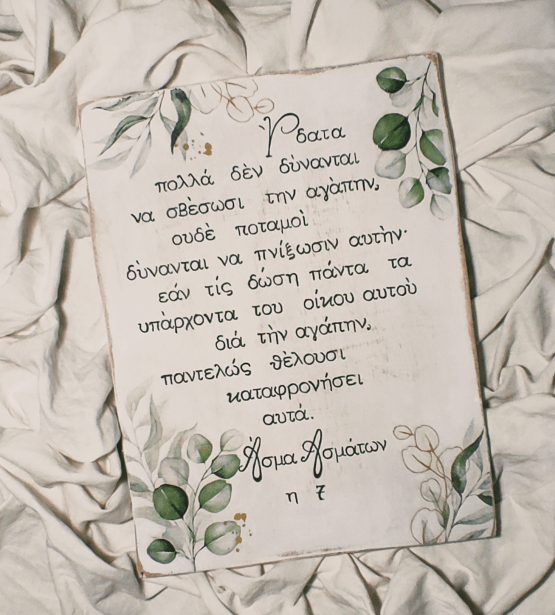 Ὑδατα
πολλά δὲν δὺνανται
να σβὲσωσι την αγὰπην,
ουδὲ ποταμοὶ
δὺνανται να πνίξωσιν αυτὴν·
εάν τίς δώση πάντα τα
υπὰρχοντα του οίκου αυτοὺ
διά τὴν αγάπην,
παντελώς θὲλουσι
καταφρονήσει
αυτά.
Ἀσμα Ἀσμάτων
η 7